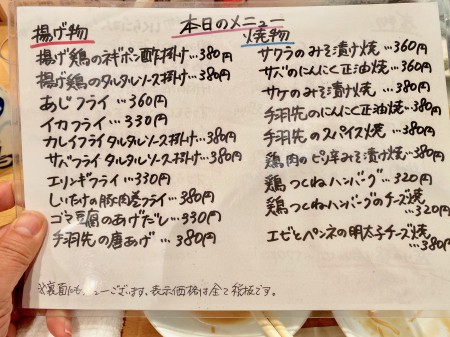 本日のメニュー
揚げ物
揚げ鶏のネギポン酢掛け…380円
揚げ鶏のタルタルソース掛け…380円
あじフライ…360円
イカフライ…330円
カレイフライタルタルソース掛け…380円
サバフライタルタルソース掛け…380円
エリンギフライ…330円
しいたけの豚肉巻フライ…380円
ゴマ豆腐のあげだし…330円
手羽先の唐あげ…380円
焼物
サワラのみそ漬け焼…360円
サバのにんにく正油焼…360円
サケのみそ漬け焼…380円
手羽先のにんにく正油焼…380円
手羽先のスパイス焼…380円
鶏肉のピリ辛みそ漬け焼…380円
鶏つくねハンバーグ…320円
鶏つくねハンバーグのチーズ焼
…320円
エビとペンネの明太子チーズ焼
…380円
※裏面にもメニューございます。表示価格は全て税抜です。